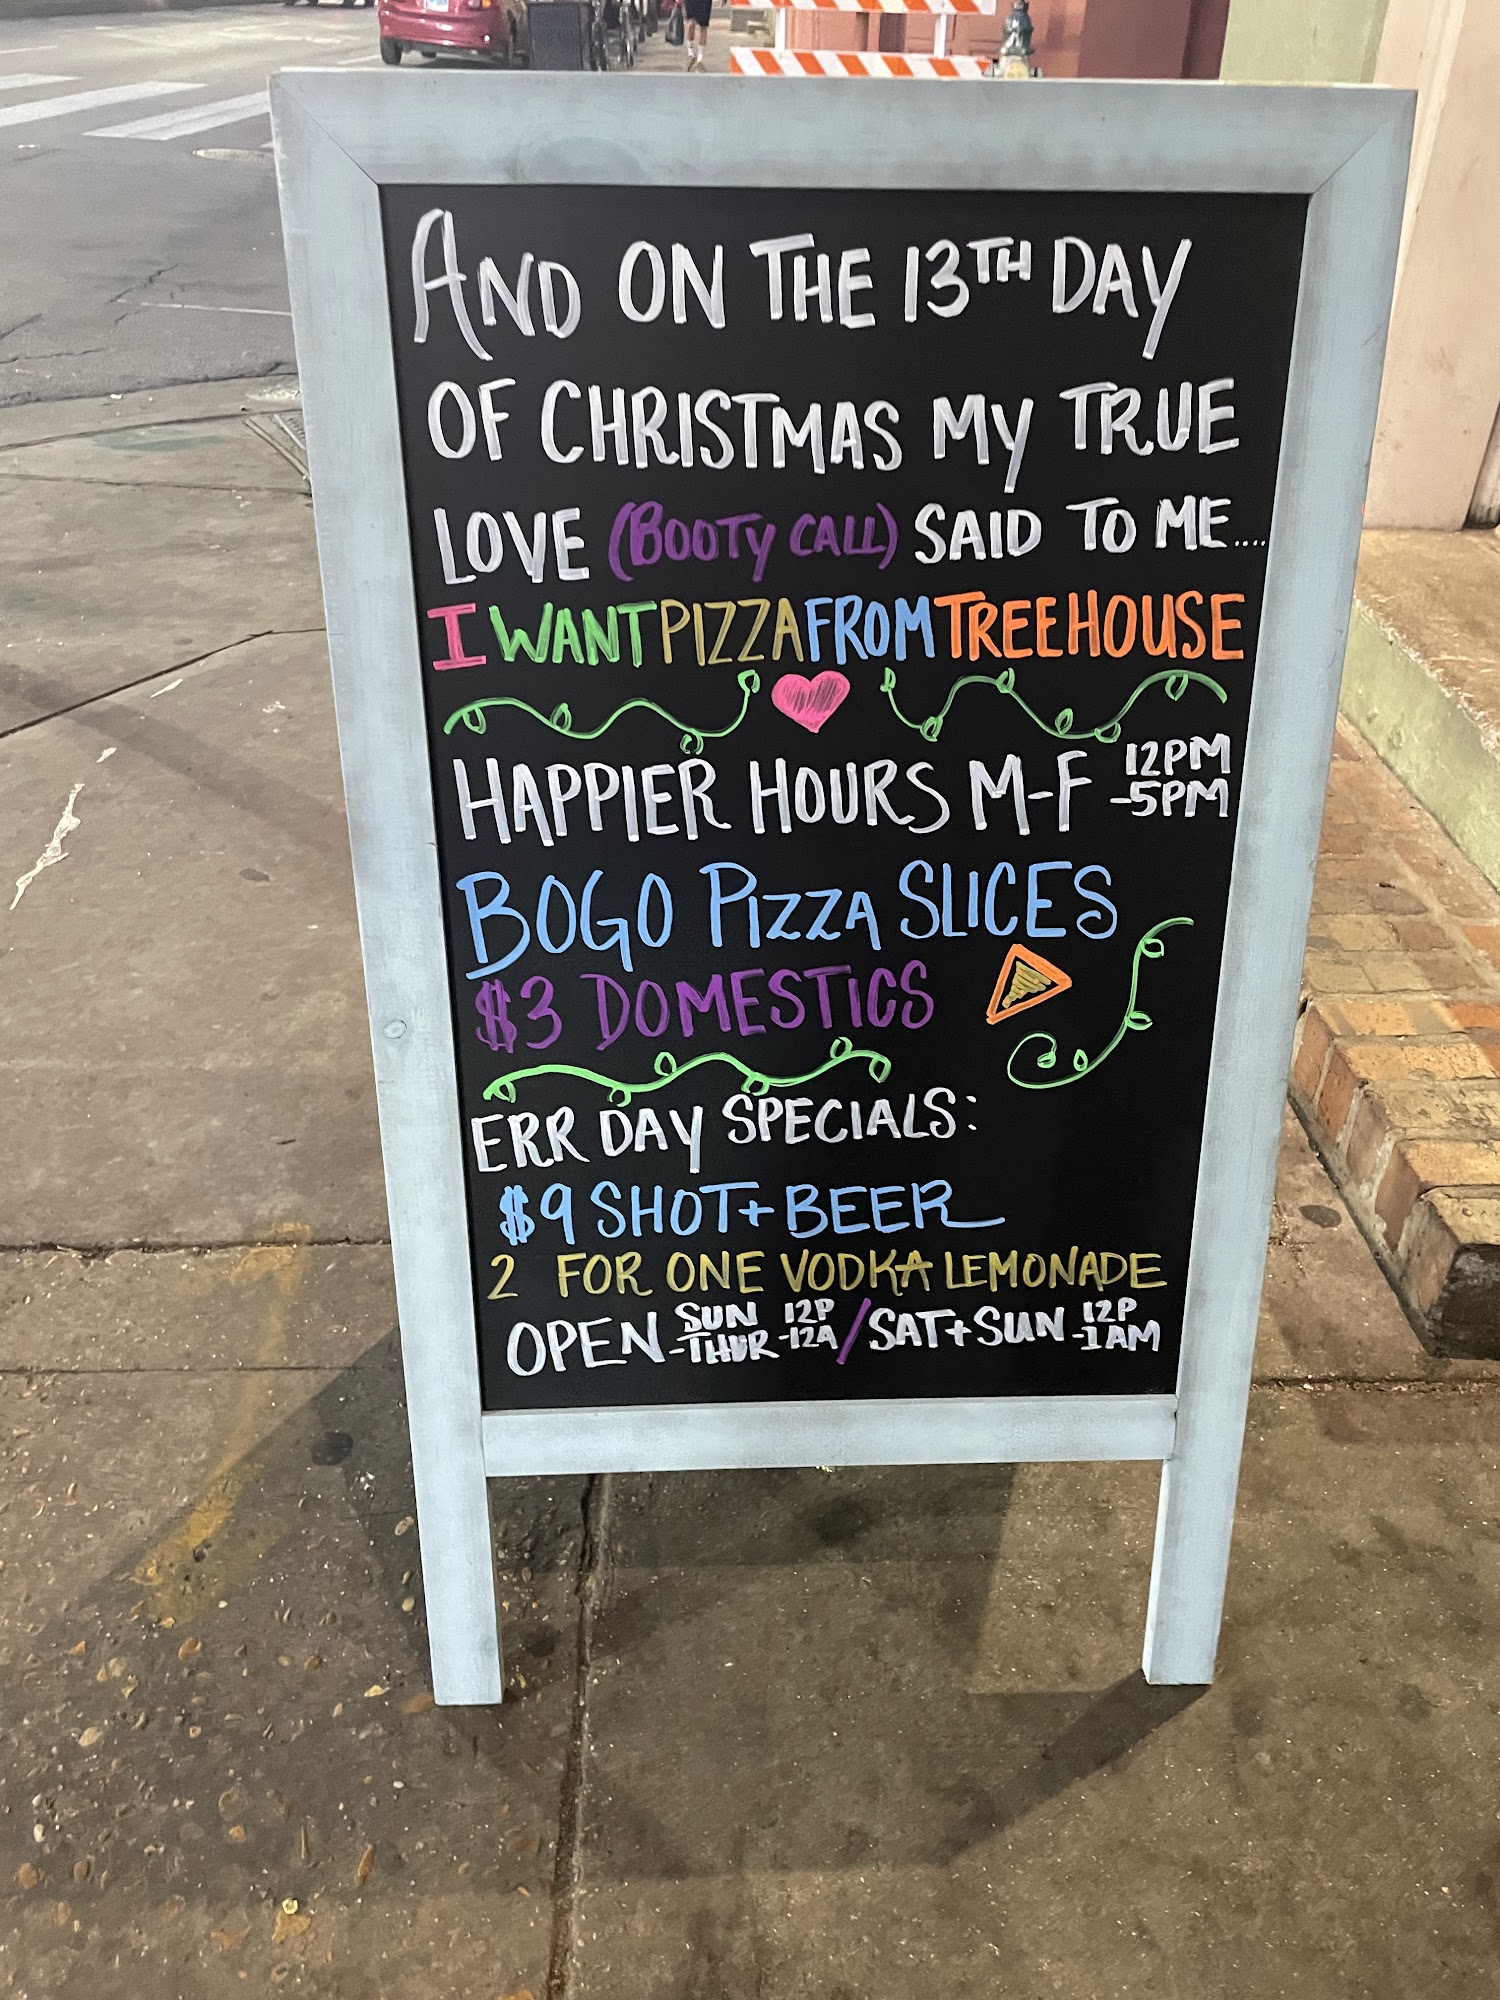 AND ON THE 13TH DAY
OF CHRISTMAS MY TRUE
LOVE (BOOTY CALL) SAID TO ME....
I WANT PIZZA FROM TREEHOUSE
HAPPIER HOURS M-F 12PM
-5PM
BOGO PIZZA SLICES
$3 DOMESTICS
ERR DAY SPECIALS:
$9 SHOT + BEER
2 FOR ONE VODKA LEMONADE
OPEN SUN -THUR 12P -12A / SAT + SUN 12P -1AM